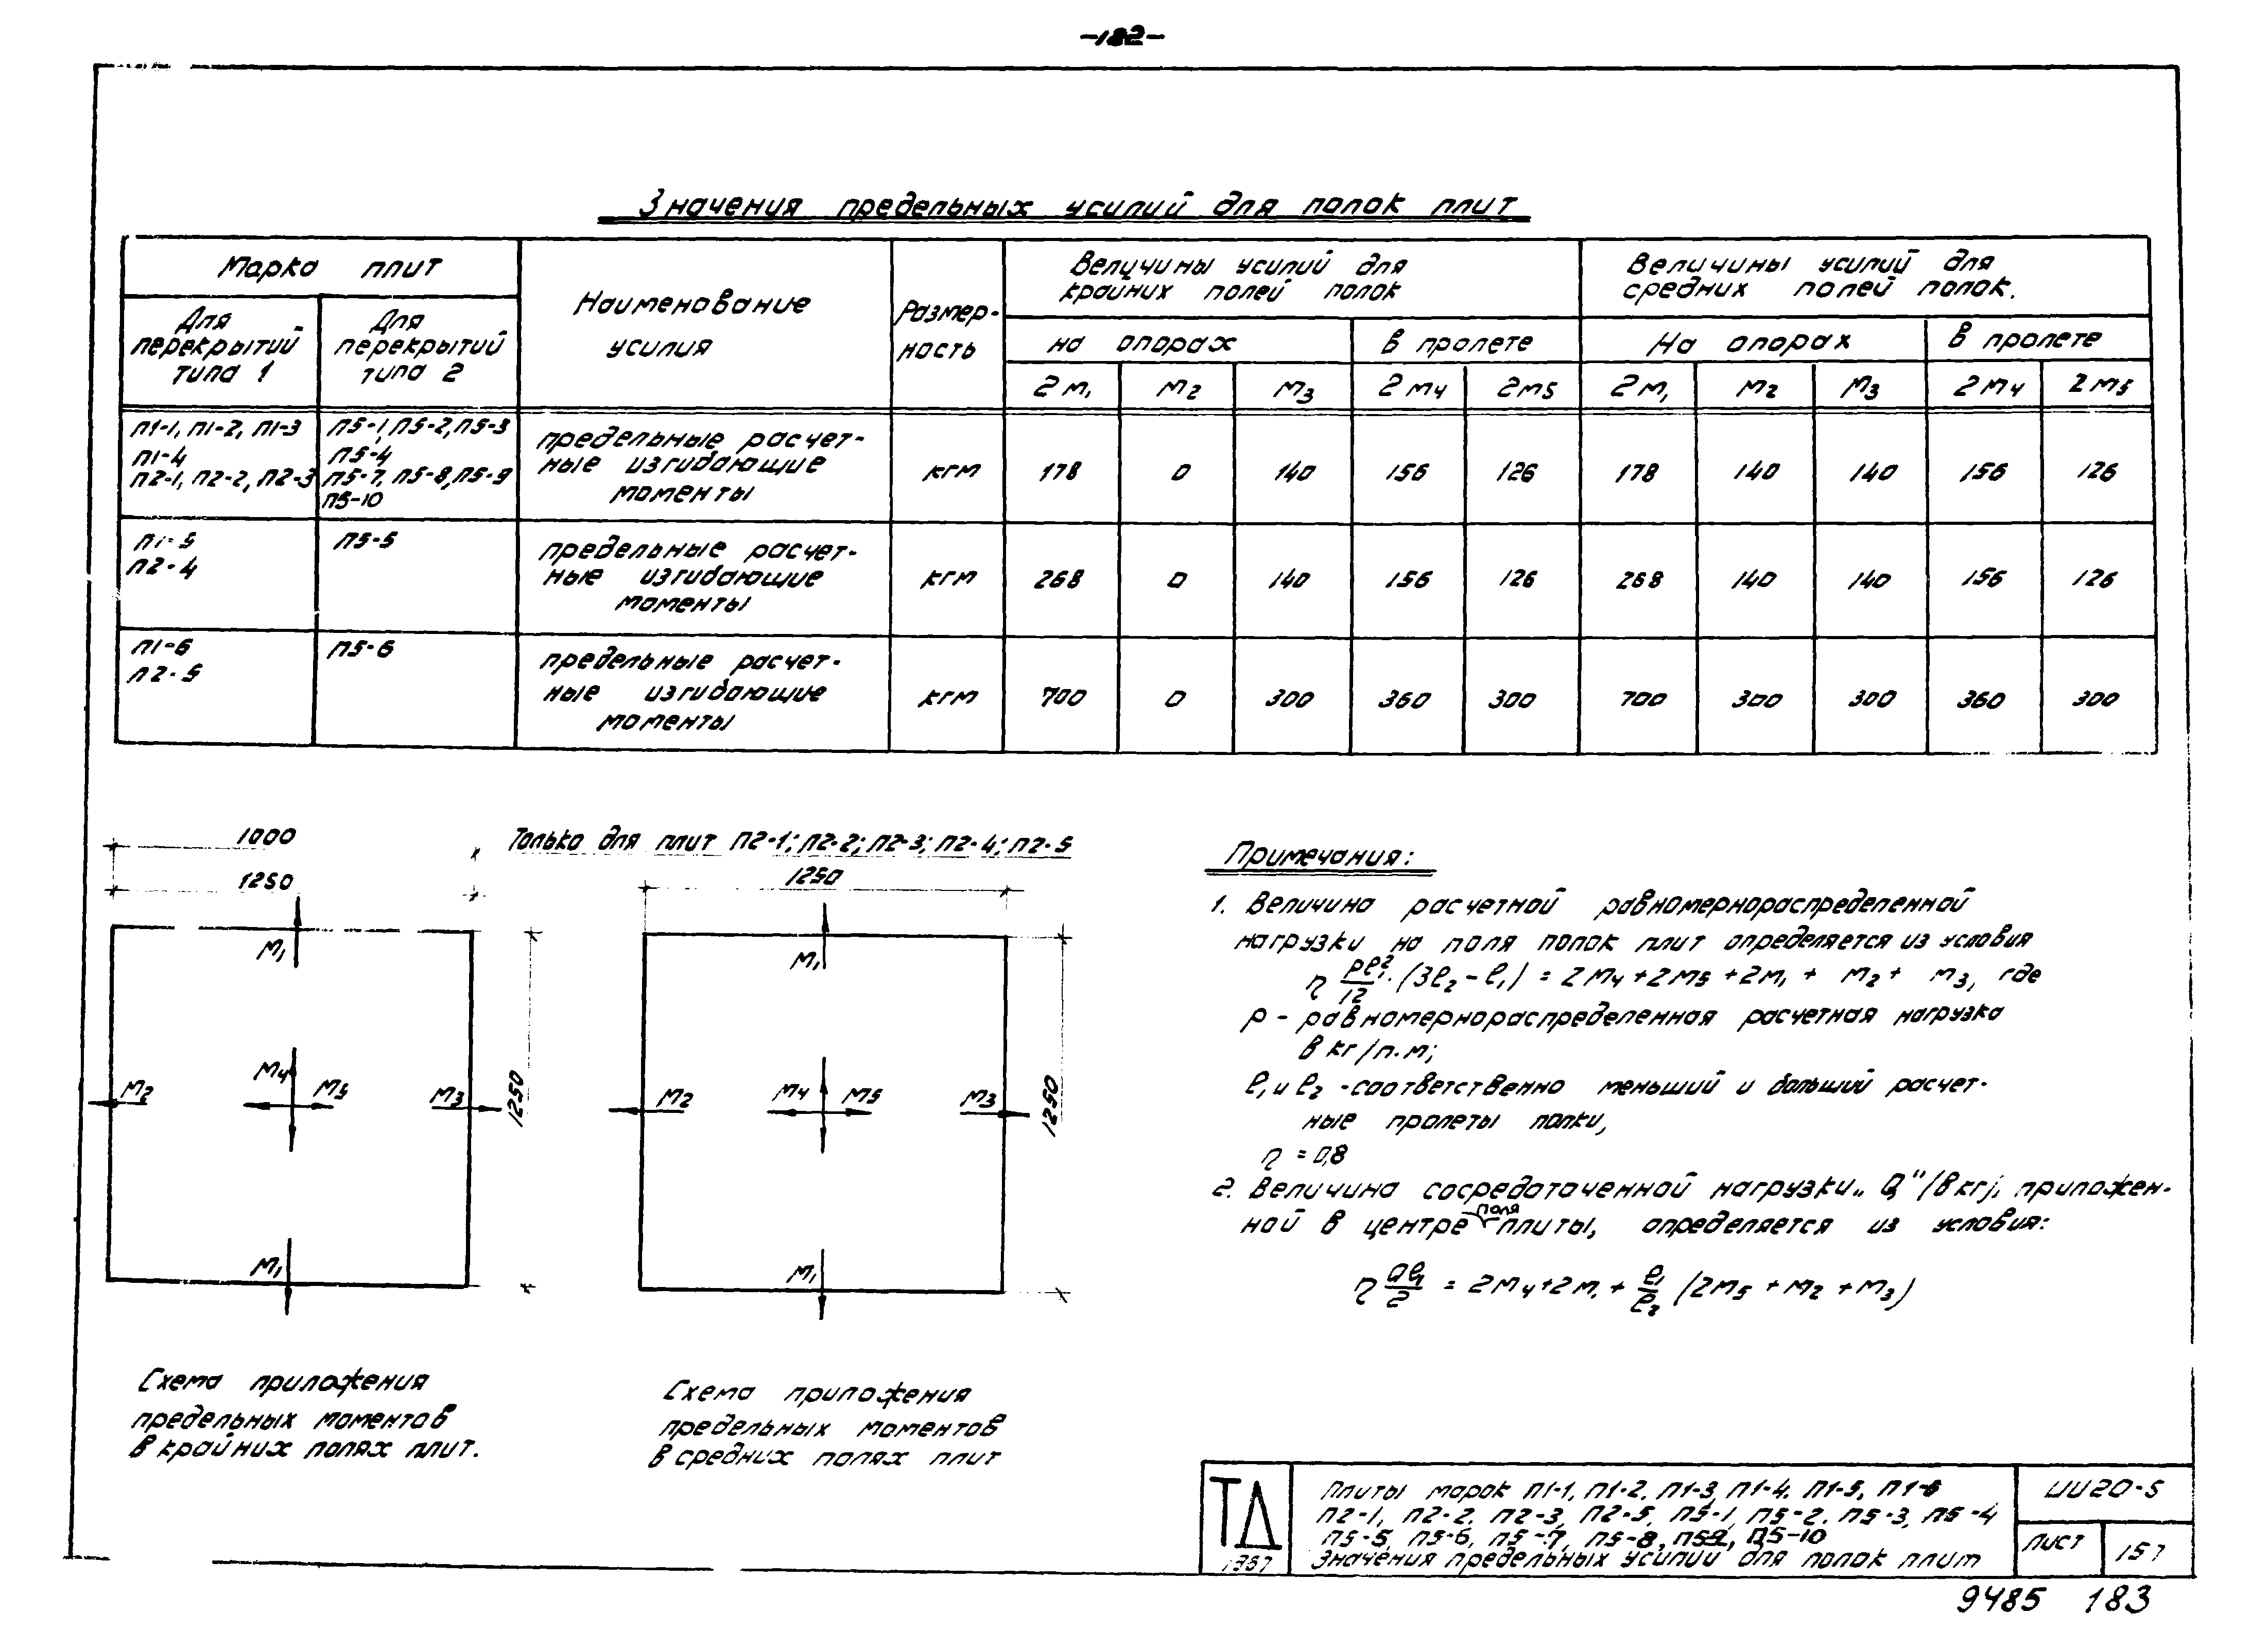 -182-
Значения предельных усилий для полок плит
Марка плит
Для перекрытий типа 1
Для перекрытий типа 2
Наименование усилия
Размер-ность
Величины усилий для крайних полей полок
Величины усилий для средних полей полок.
на опорах
в пролете
На опорах
в пролете
2м₁ м₂ м₃ 2м₄ 2м₅ 2м₁ м₂ м₃ 2м₄ 2м₅
П1-1, П1-2, П1-3
П1-4
П2-1, П2-2, П2-3
П5-1, П5-2, П5-3
П5-4
П5-7, П5-8, П5-9
П5-10
предельные расчет-
ные изгибающие
моменты
кгм 178 0 140 156 126 178 140 140 156 126
П1-5
П2-4
П5-5
предельные расчет-
ные изгибающие
моменты
кгм 268 0 140 156 126 268 140 140 156 126
П1-6
П2-5
П5-6
предельные расчет-
ные изгибающие
моменты
кгм 700 0 300 360 300 700 300 300 360 300
1000
1250
М₁
М₂ М₄ М₅ М₃
1250
М₁
Схема приложения
предельных моментов
в крайних полях плит.
Только для плит П2-1; П2-2; П2-3; П2-4; П2-5
1250
М₁
М₂ М₄ М₅ М₃
1250
М₁
Схема приложения
предельных моментов
в средних полях плит
Примечания:
1. Величина расчетной равномернораспределенной
нагрузки на поля полок плит определяется из условия
η pℓ₁²/12 · (3ℓ₂ - ℓ₁) = 2м₄ + 2м₅ + 2м₁ + м₂ + м₃, где
р - равномернораспределенная расчетная нагрузка
в кг/п.м;
ℓ₁ и ℓ₂ - соответственно меньший и больший расчет-
ные пролеты полки,
η = 0,8
2. Величина сосредоточенной нагрузки „Q" (в кг), приложен-
ной в центре поля плиты, определяется из условия:
η Qℓ₁/2 = 2м₄ + 2м₁ + ℓ₁/ℓ₂ (2м₅ + м₂ + м₃)
ТД
1967
Плиты марок П1-1, П1-2, П1-3, П1-4, П1-5, П1-6
П2-1, П2-2, П2-3, П2-5, П5-1, П5-2, П5-3, П5-4
П5-5, П5-6, П5-7, П5-8, П5-9, П5-10
Значения предельных усилий для полок плит
ИИ20-5
Лист 157
9485 183